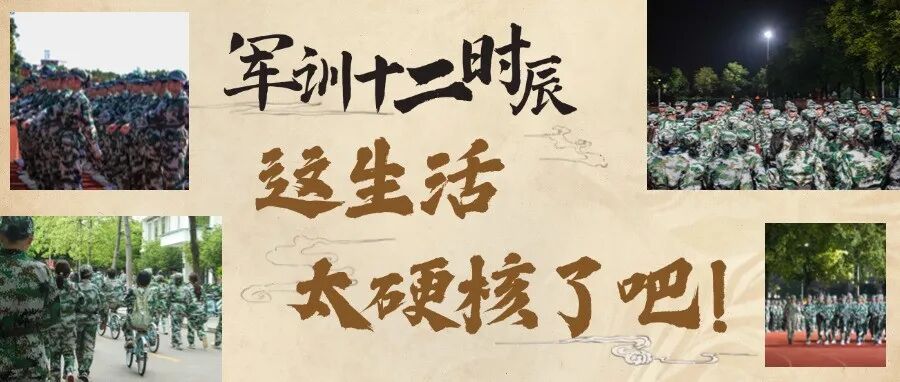 军训十二时辰
这生活
太硬核了吧！